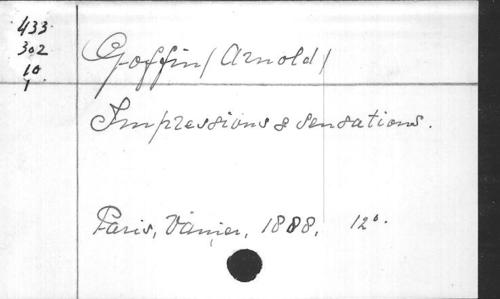 433
302
10
1
Goffin (Arnold)
Impressions & sensations.
Paris, Vanier, 1888, 12°.